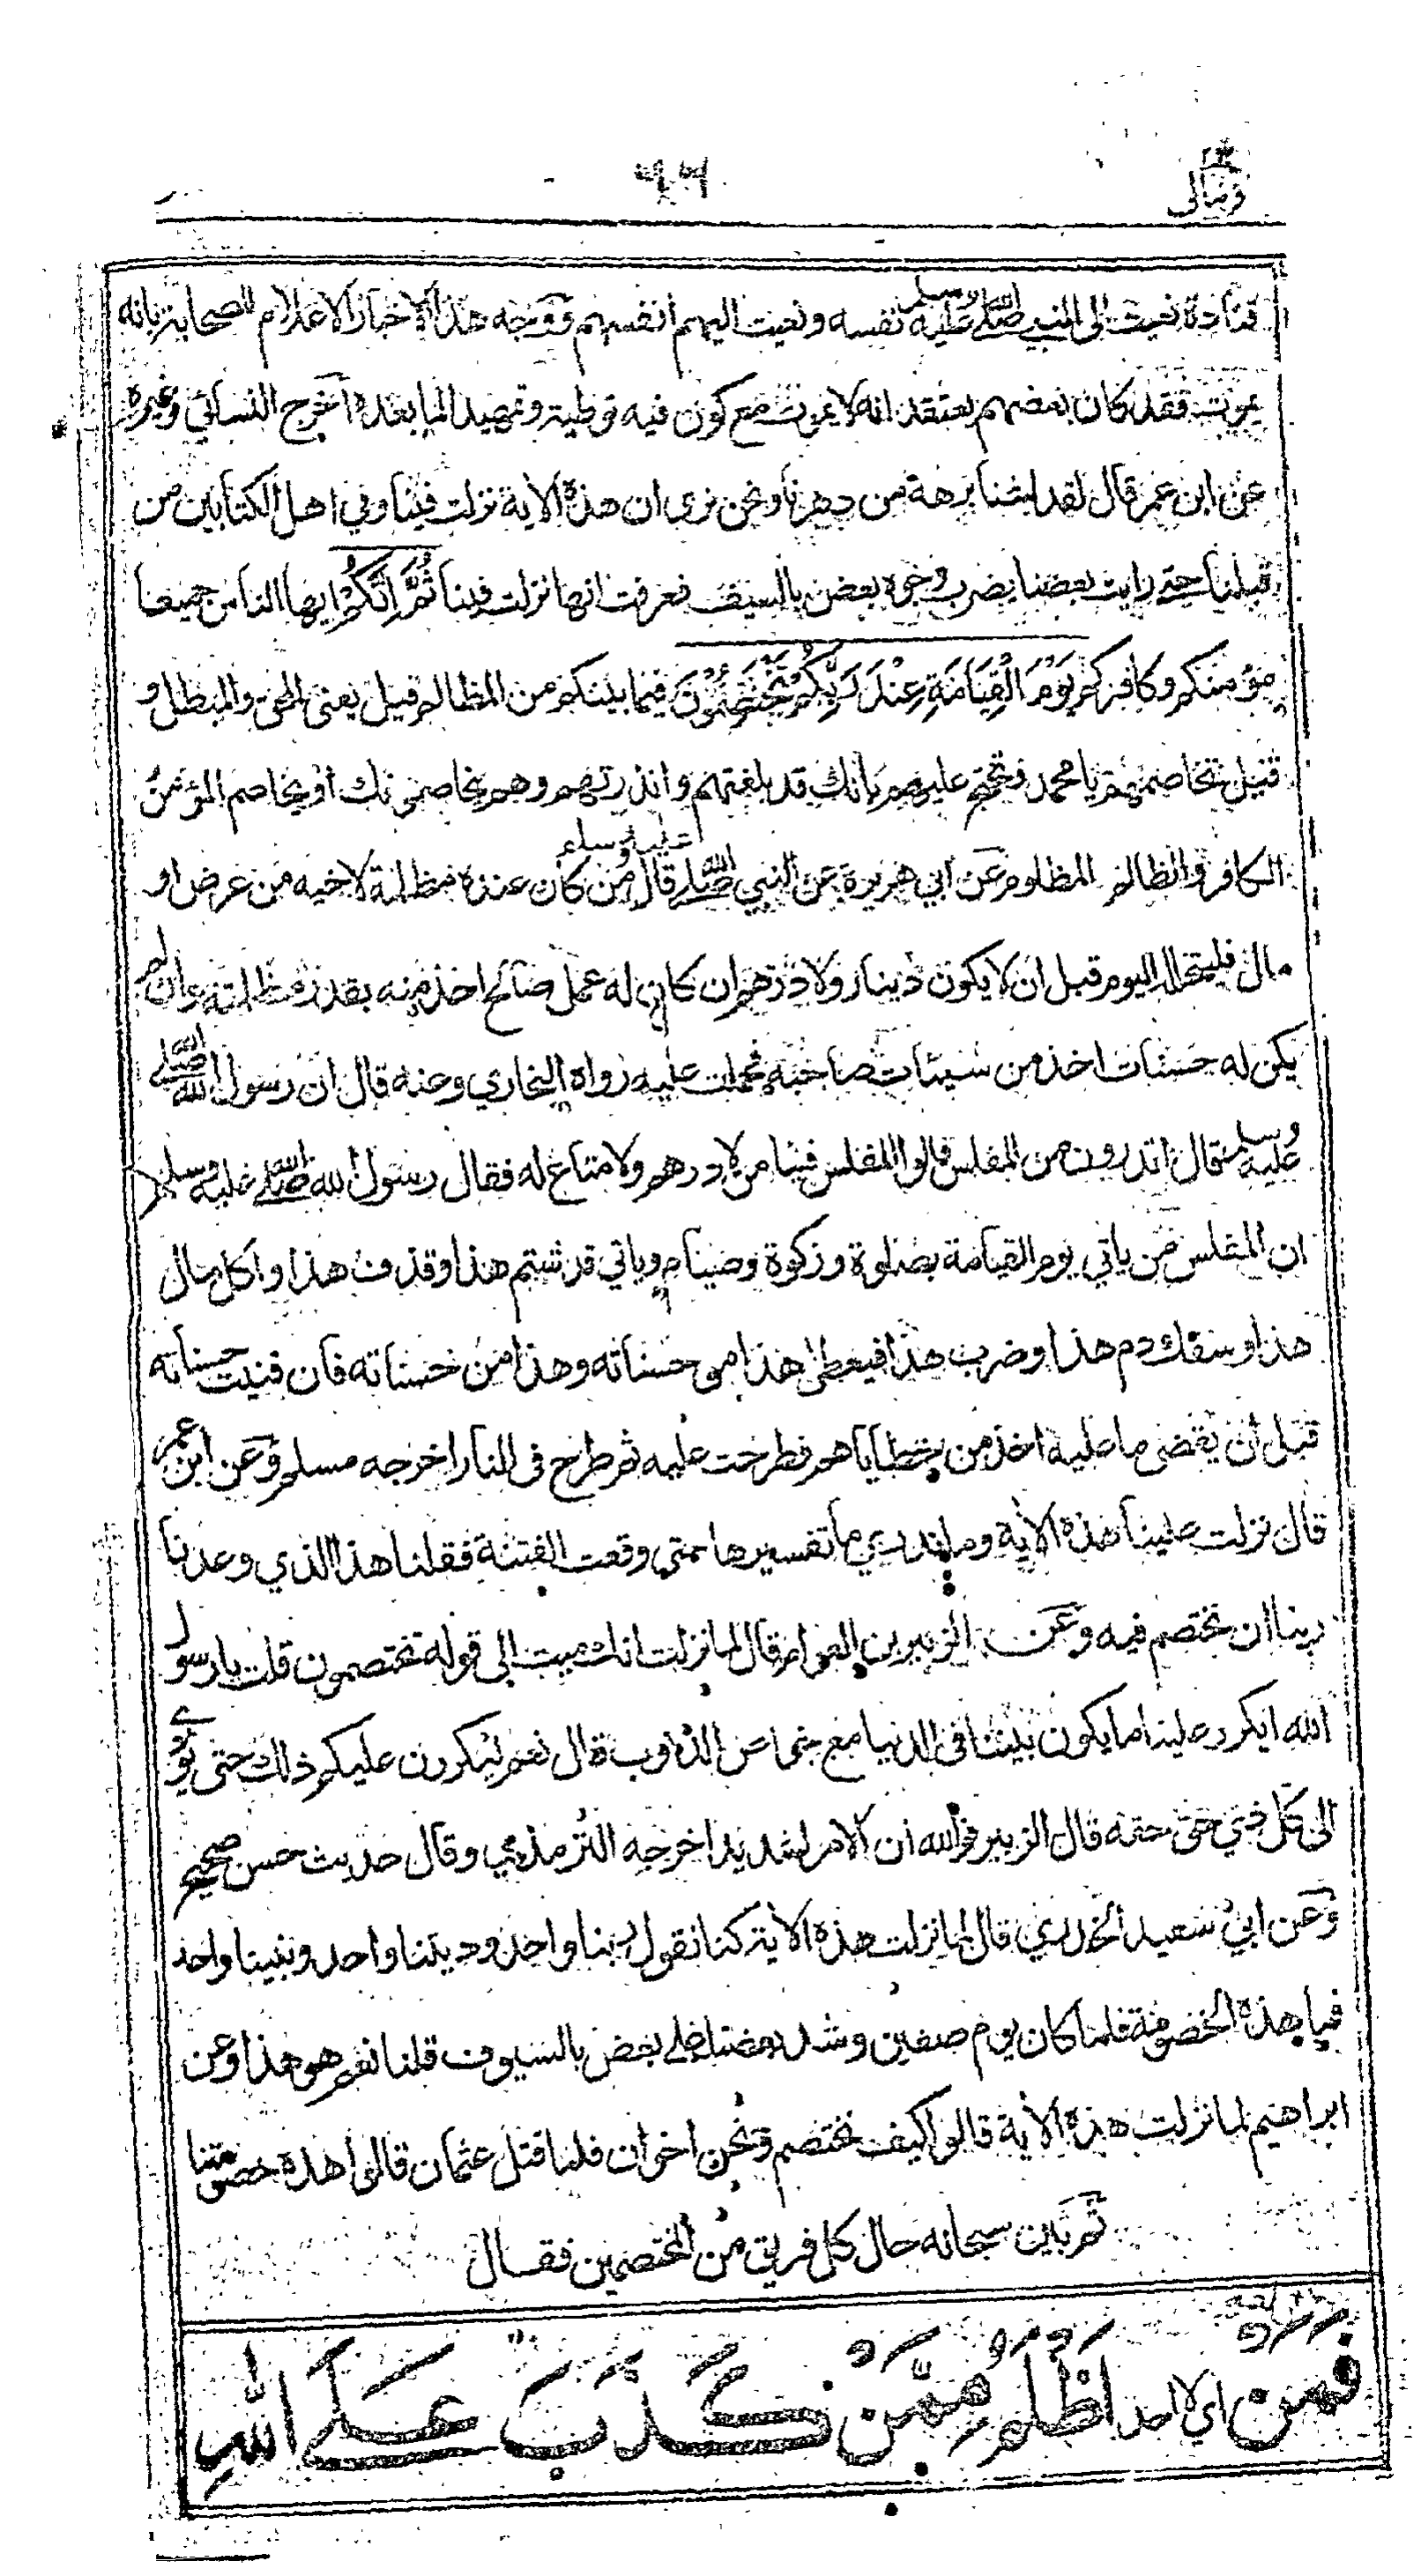 ومالى
٦٦
قتادة نعيت الى النبي صلى الله عليه وسلم نفسه ونعيت اليهم انفسهم فوجه هذا الاخبار الاعلام للصحابة بانه
يموت فقد كان بعضهم يعتقد انه لا يموت مع كون فيه توطية وتمهيد لما بعده اخرج النسائي وغيره
عن ابن عمر قال لقد لبثنا برهة من دهرنا ونحن نرى ان هذه الاية نزلت فينا وفي اهل الكتابين من
قبلنا حتى رايت بعضنا يضرب وجوه بعض بالسيف فعرفت انها نزلت فينا ثُمَّ اِنَّكُمْ ايها الناس جميعا
مؤمنكم وكافركم يَوْمَ الْقِيَامَةِ عِنْدَ رَبِّكُمْ تَخْتَصِمُوْنَ فيما بينكم من المظالم قيل يعنى المحق والمبطل و
قيل تخاصمهم يا محمد وتحتج عليهم بانك قد بلغتهم وانذرتهم وهم يخاصمونك او يخاصم المؤمن
الكافر والظالم المظلوم عن ابي هريرة عن النبي صلى الله عليه وسلم قال من كان عنده مظلمة لاخيه من عرض او
مال فليتحلله اليوم قبل ان لا يكون دينار ولا درهم ان كان له عمل صالح اخذ منه بقدر مظلمته وان لم
يكن له حسنات اخذ من سيئات صاحبه فحملت عليه رواه البخاري وعنه قال ان رسول الله صلى
عليه وسلم قال اتدرون من المفلس قالوا المفلس فينا من لا درهم ولا متاع له فقال رسول الله صلى الله عليه وسلم
ان المفلس من ياتي يوم القيامة بصلوة وزكوة وصيام وياتي قد شتم هذا وقذف هذا واكل مال
هذا وسفك دم هذا وضرب هذا فيعطى هذا من حسناته وهذا من حسناته فان فنيت حسناته
قبل ان يقضى ما عليه اخذ من خطاياهم فطرحت عليه ثم طرح في النار اخرجه مسلم وعن ابن عمر
قال نزلت علينا هذه الاية وما ندري ما تفسيرها حتى وقعت الفتنة فقلنا هذا الذي وعدنا
ربنا ان نختصم فيه وعن الزبير بن العوام قال لما نزلت انك ميت الى قوله تختصمون قلت يا رسول
الله ايكرر علينا ما يكون بيننا في الدنيا مع خواص الذنوب قال نعم ليكررن عليكم ذلك حتى يؤدى
الى كل ذي حق حقه قال الزبير فوالله ان الامر لشديد اخرجه الترمذي وقال حديث حسن صحيح
وعن ابي سعيد الخدري قال لما نزلت هذه الاية كنا نقول ربنا واحد وديننا واحد ونبينا واحد
فما هذه الخصومة فلما كان يوم صفين وشد بعضنا على بعض بالسيوف قلنا نعم هو هذا وعن
ابراهيم لما نزلت هذه الاية قالوا كيف نختصم ونحن اخوان فلما قتل عثمان قالوا هذه خصومتنا
ثم بين سبحانه حال كل فريق من المختصمين فقال
فَمَنْ اي لا احد اَظْلَمُ مِمَّنْ كَذَبَ عَلَى اللهِ